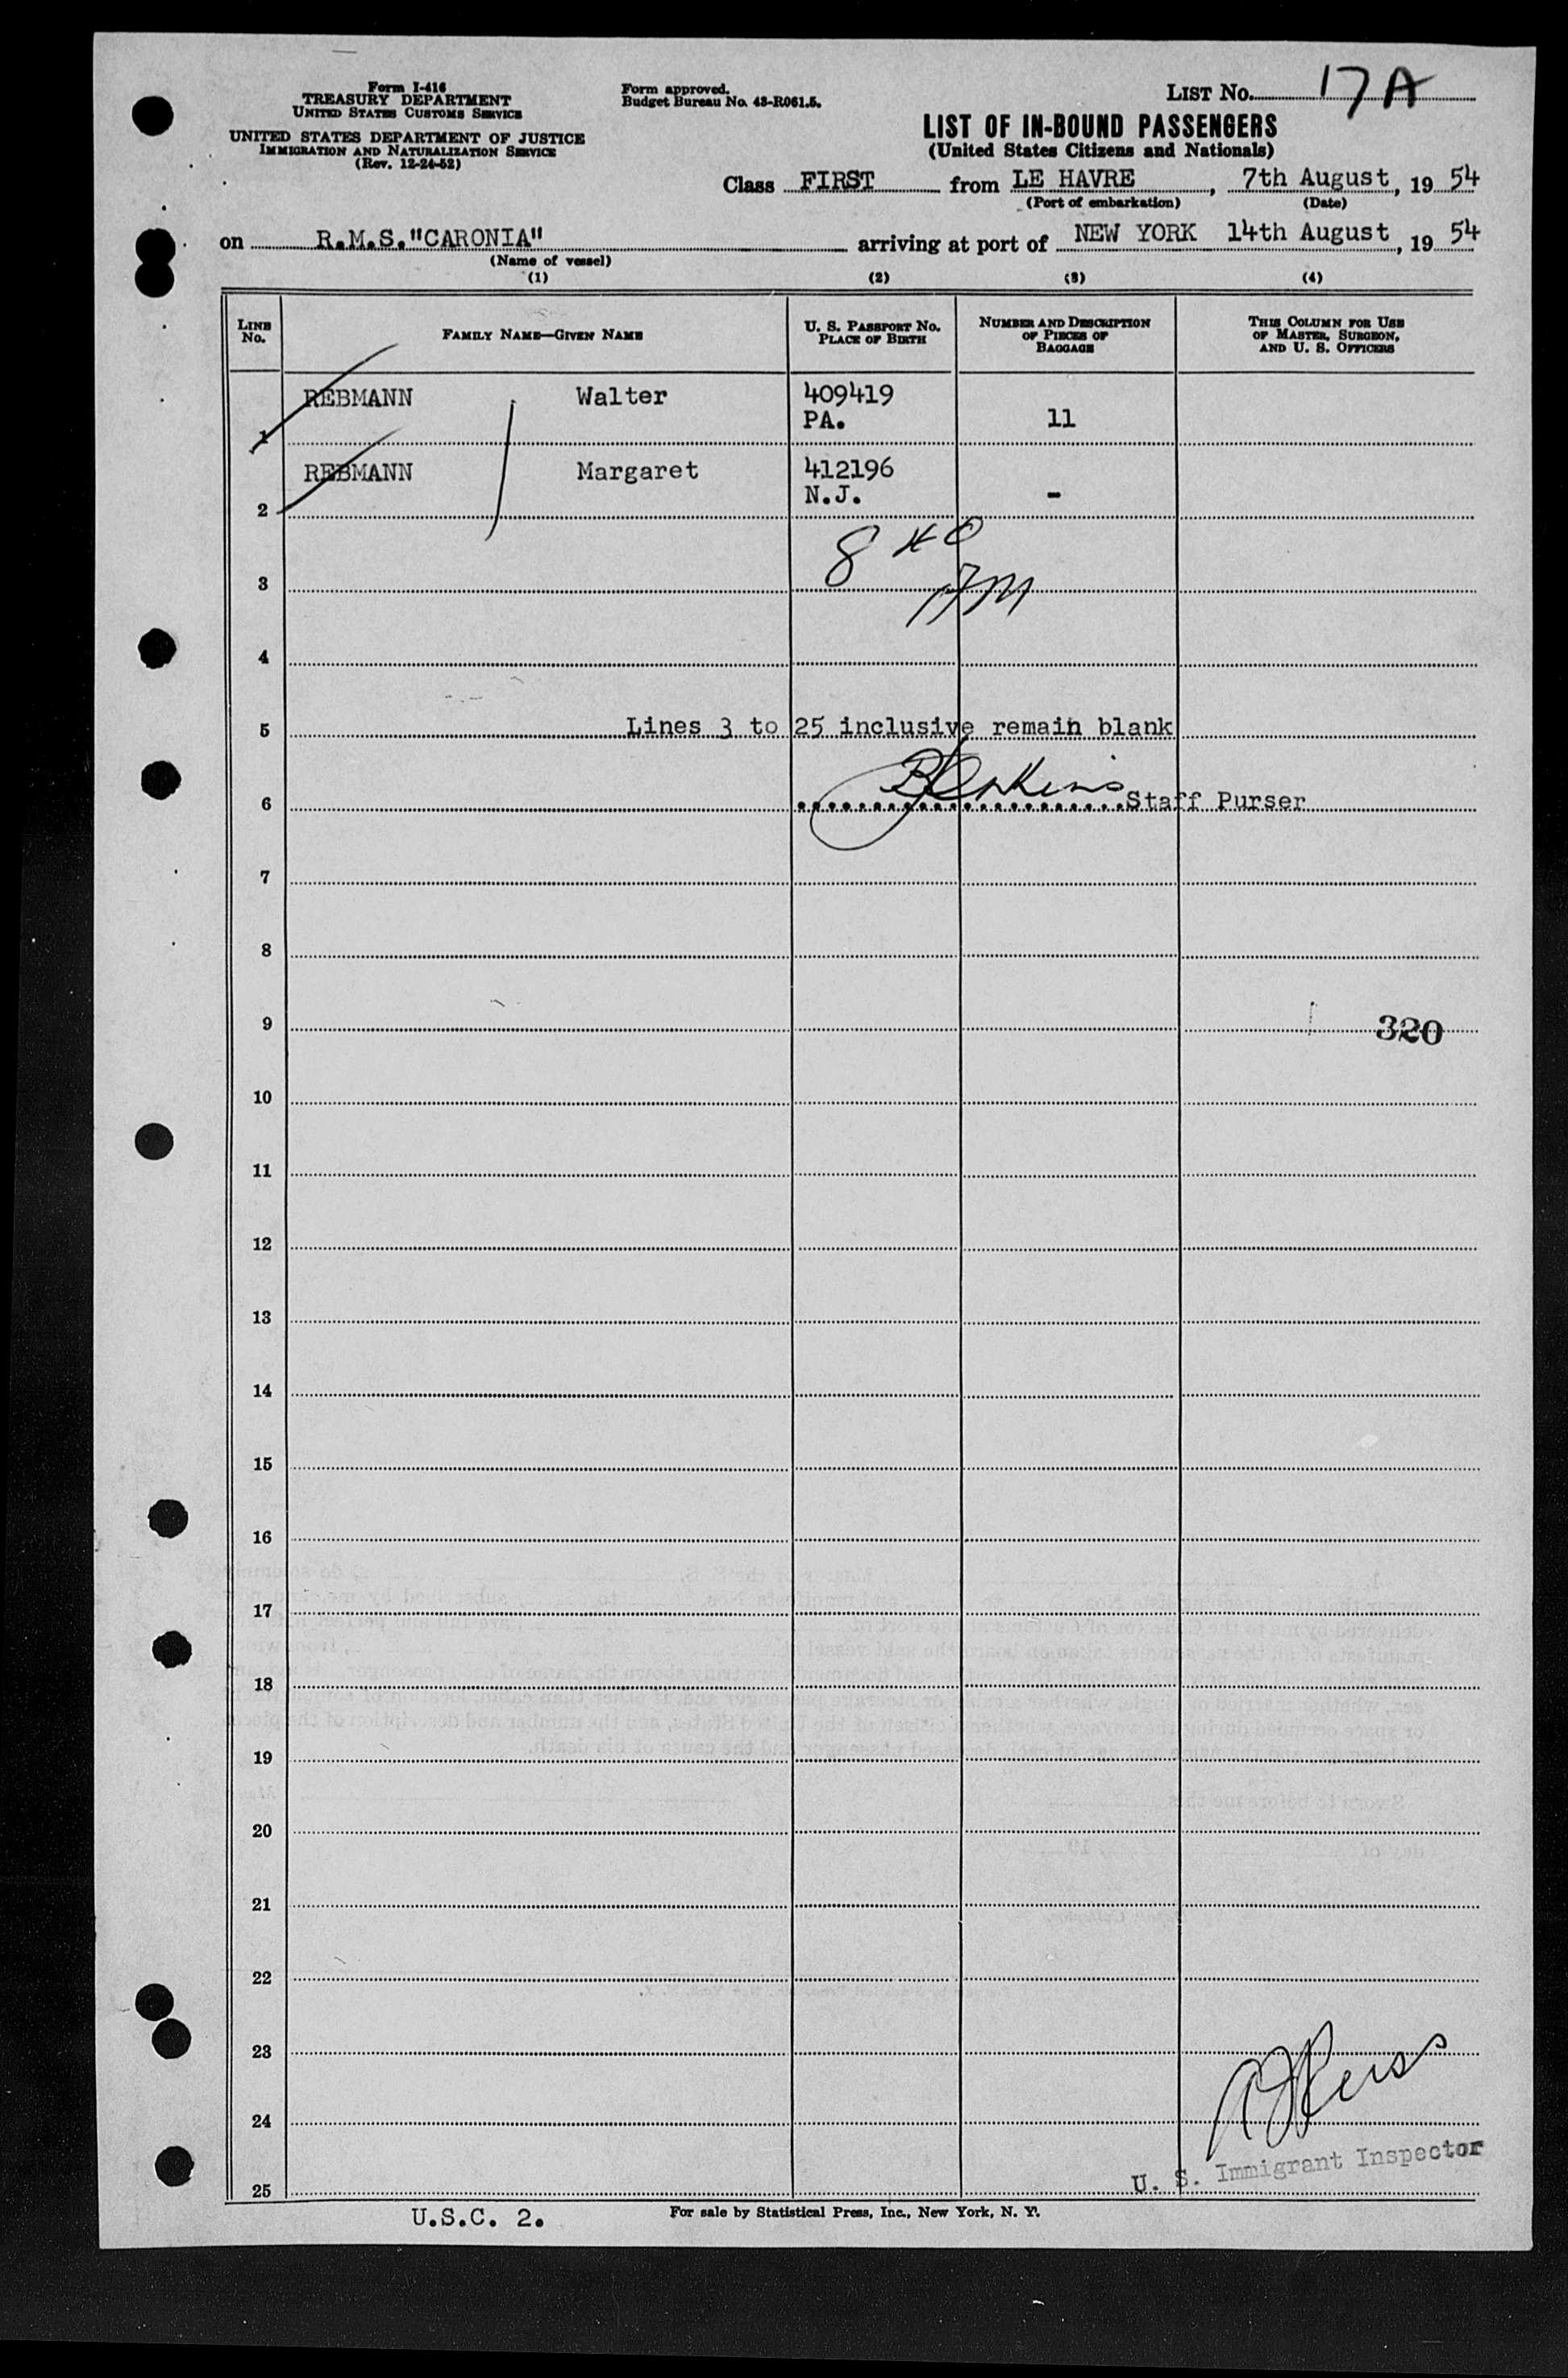 Form I-416
TREASURY DEPARTMENT
UNITED STATES CUSTOMS SERVICE
UNITED STATES DEPARTMENT OF JUSTICE
IMMIGRATION AND NATURALIZATION SERVICE
(Rev. 12-24-52)
Form approved.
Budget Bureau No. 43-R061.5.
LIST No. 17A
LIST OF IN-BOUND PASSENGERS
(United States Citizens and Nationals)
Class FIRST from LE HAVRE, 7th August, 19 54
(Port of embarkation) (Date)
on R.M.S."CARONIA" arriving at port of NEW YORK 14th August, 19 54
(Name of vessel)
(1) (2) (3) (4)
LINE No. FAMILY NAME—GIVEN NAME U. S. PASSPORT NO. PLACE OF BIRTH NUMBER AND DESCRIPTION OF PIECES OF BAGGAGE THIS COLUMN FOR USE OF MASTER, SURGEON, AND U. S. OFFICERS
REBMANN Walter 409419
1 PA. 11
REBMANN Margaret 412196
2 N.J. -
8 40
AM
3
4
5 Lines 3 to 25 inclusive remain blank
6 Staff Purser
7
8
9 320
10
11
12
13
14
15
16
17
18
19
20
21
22
23
24
U. S. Immigrant Inspector
25
U.S.C. 2. For sale by Statistical Press, Inc., New York, N. Y.